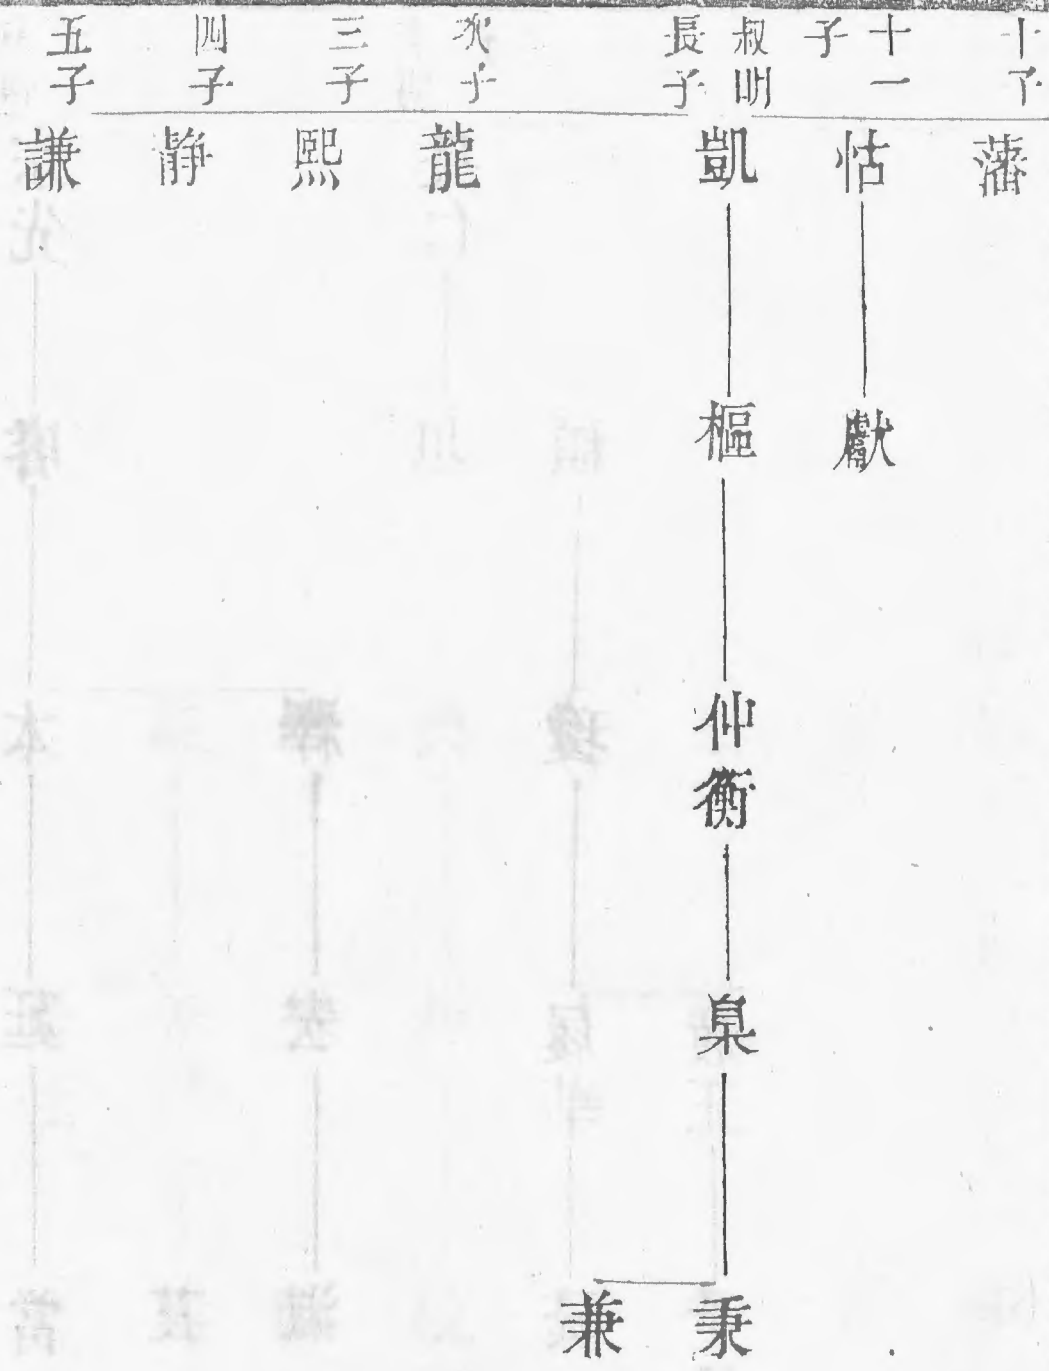 十子
藩
十一子
怙
獻
叔明長子
凱
樞
仲衡
臬
秉
兼
次子
龍
三子
熙
四子
静
五子
謙